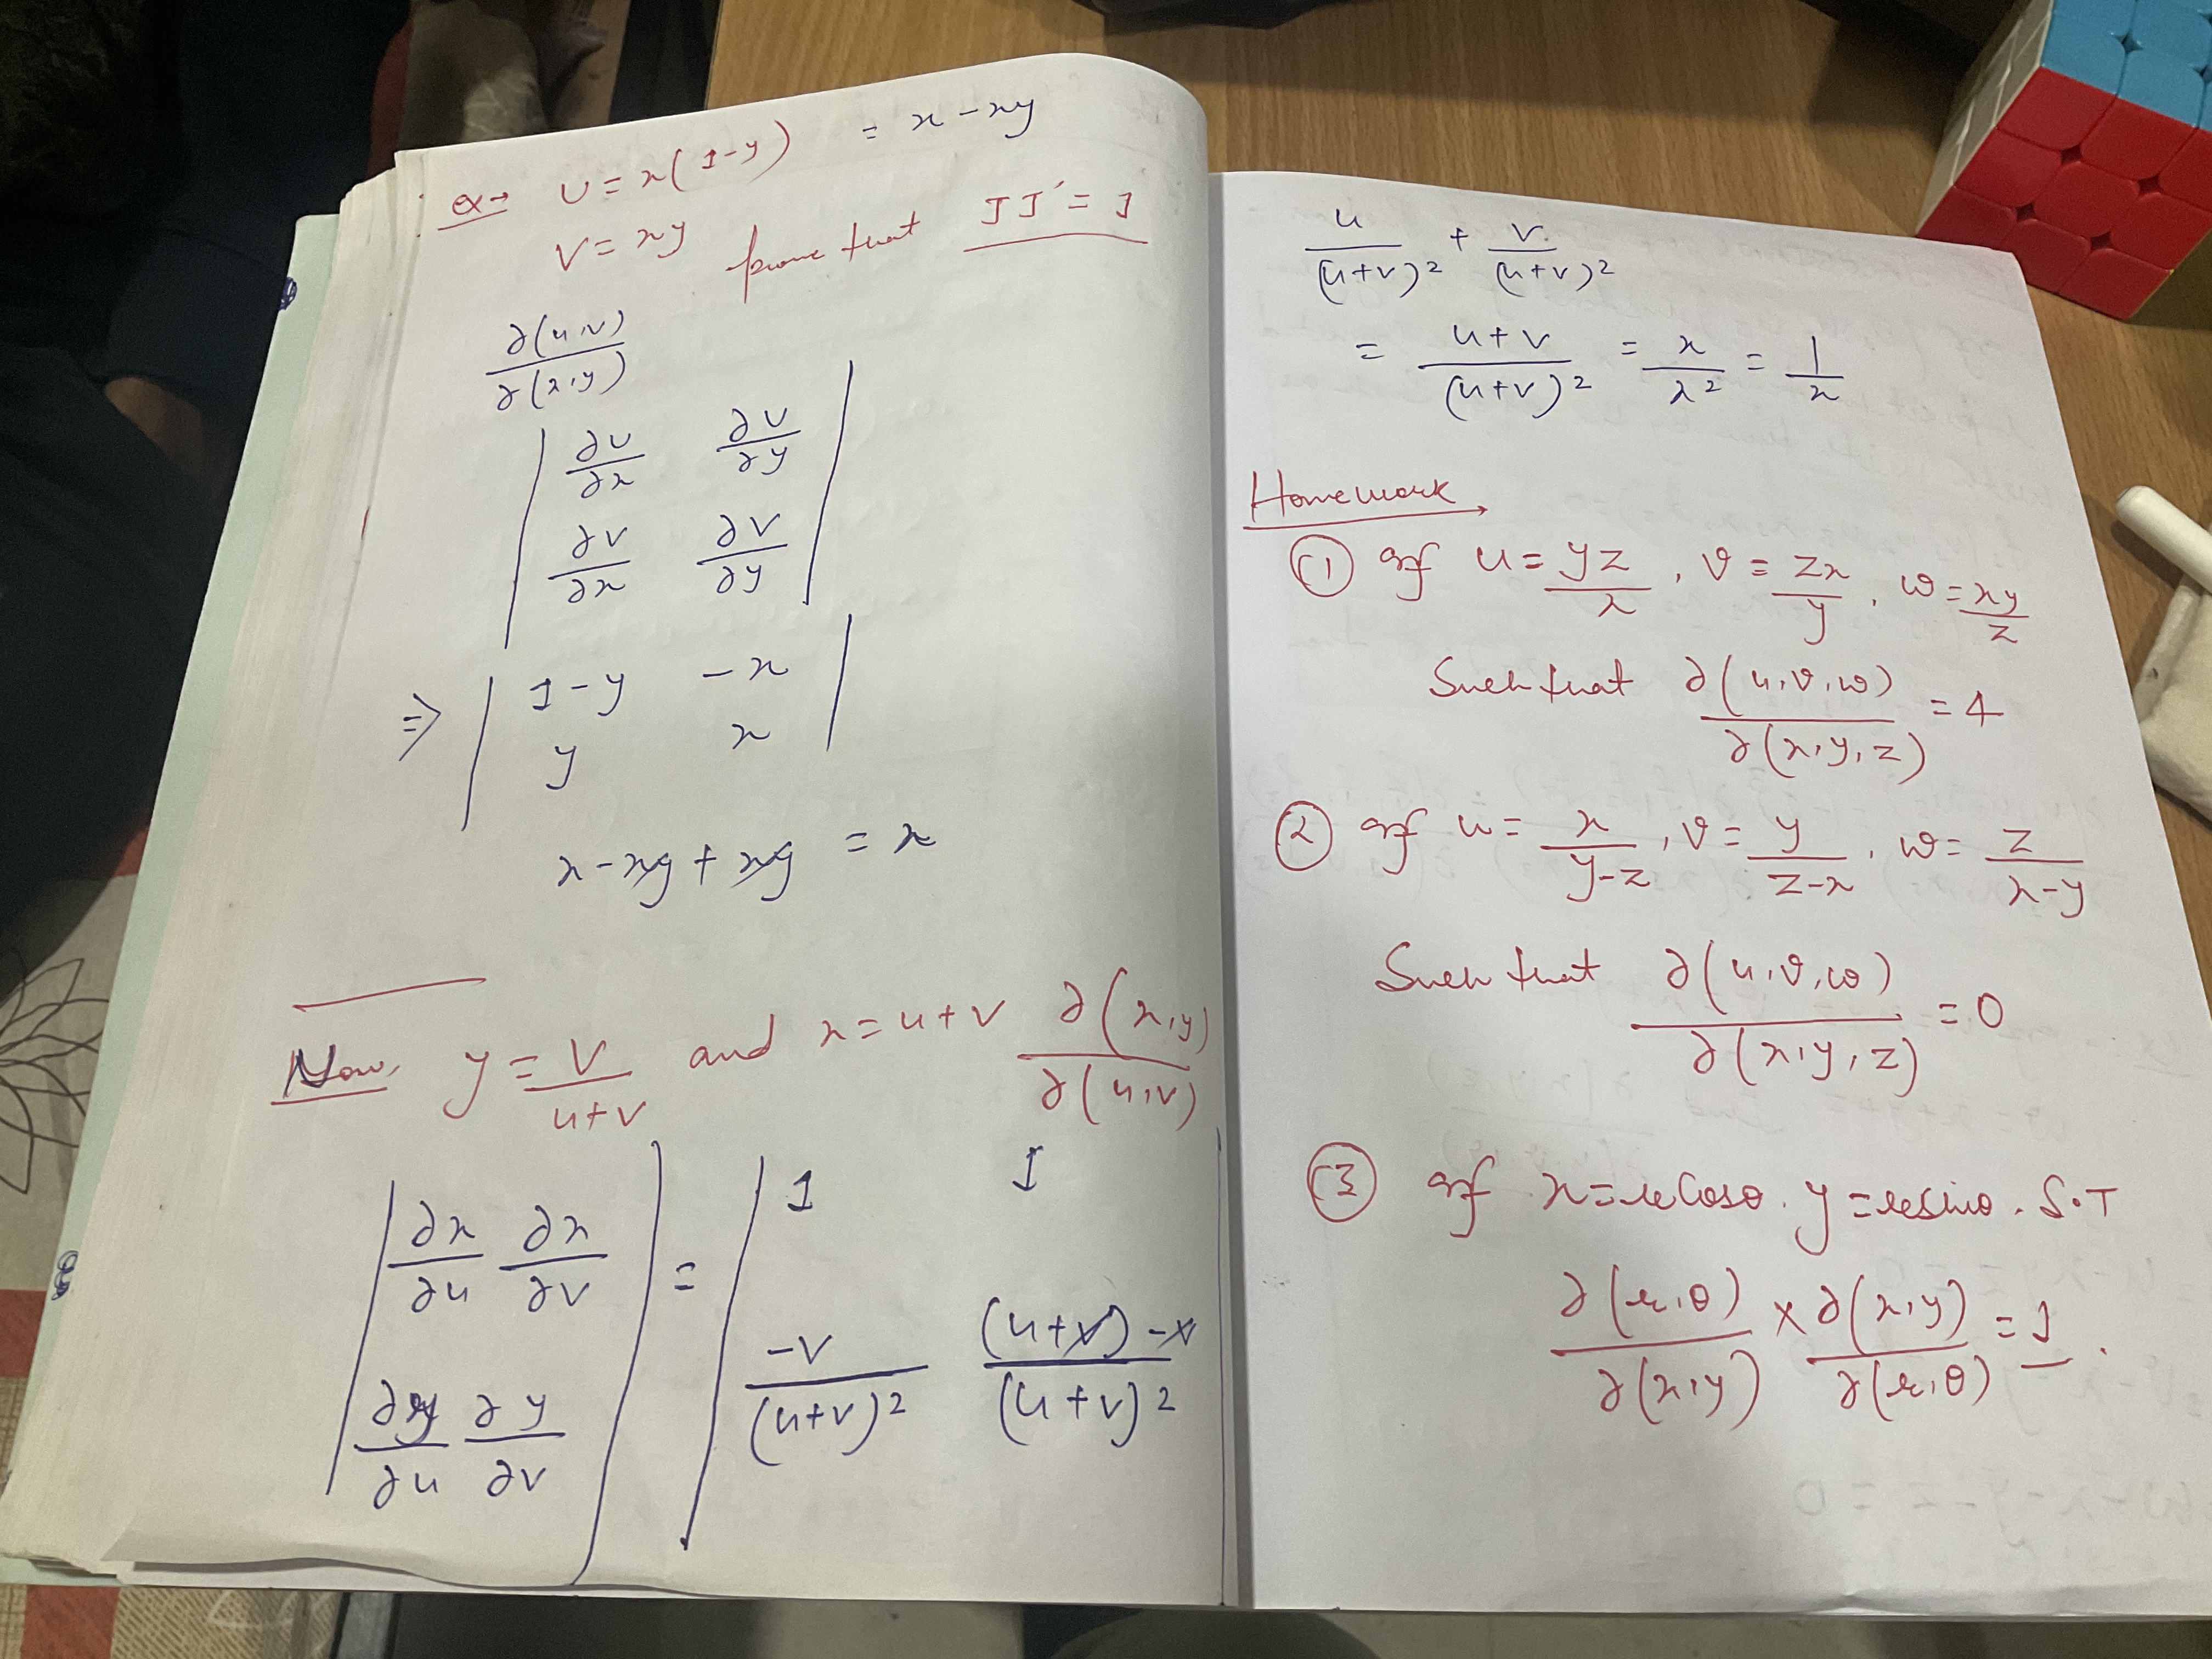 ex→ U = x(1-y) = x - xy
V = xy prove that JJ' = 1
∂(u,v)/∂(x,y)
| ∂U/∂x ∂U/∂y |
| ∂V/∂x ∂V/∂y |
⇒ | 1-y -x |
| y x |
x - xy + xy = x
Now, y = V/(u+v) and x = u+v ∂(x,y)/∂(u,v)
| ∂x/∂u ∂x/∂v | = | 1 1
| ∂y/∂u ∂y/∂v | | -v/(u+v)² ((u+v)-v)/(u+v)² |
u/(u+v)² + v/(u+v)²
= (u+v)/(u+v)² = x/x² = 1/x
Homework
① If u = yz/x, v = zx/y, w = xy/z
Such that ∂(u,v,w)/∂(x,y,z) = 4
② If u = x/(y-z), v = y/(z-x), w = z/(x-y)
Such that ∂(u,v,w)/∂(x,y,z) = 0
③ If x = rcosθ. y = rsinθ. S.T
∂(r,θ)/∂(x,y) × ∂(x,y)/∂(r,θ) = 1.